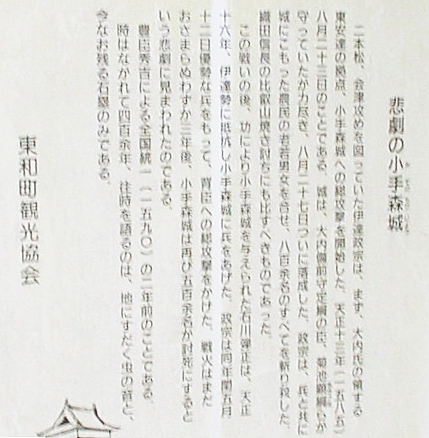 悲劇の小手森城
二本松、会津攻めを図っていた伊達政宗は、まず、大内氏の領する
東安達の拠点、小手森城への総攻撃を開始した。天正十三年(一五八五)
八月二十三日のことである。城は、大内備前守定綱の臣、菊池顕綱らが
守っていたが力尽き、八月二十七日ついに落成した。政宗は、兵と共に
城にこもった農民の老若男女を合せ、八百余名のすべてを斬り殺した。
織田信長の比叡山焼き討ちにも比すべきものであった。
この戦いの後、功により小手森城を与えられた石川弾正は、天正
十六年、伊達勢に抵抗し小手森城に兵をあげた。政宗は同年閏五月
十二日優勢な兵をもって、背臣への総攻撃をかけた。戦火はまだ
おさまらぬわずか三年後、小手森城は再び五百余名が討死にすると
いう悲劇に見まわれたのである。
豊臣秀吉による全国統一(一五九〇)の二年前のことである。
時はながれて四百余年、往時を語るのは、地にすだく虫の音と、
今なお残る石塁のみである。
東和町観光協会